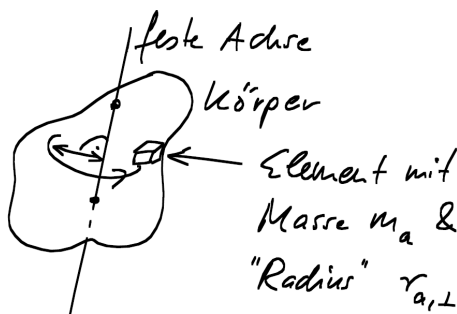 feste Achse
Körper
Element mit
Masse mₐ &
"Radius" rₐ,⊥